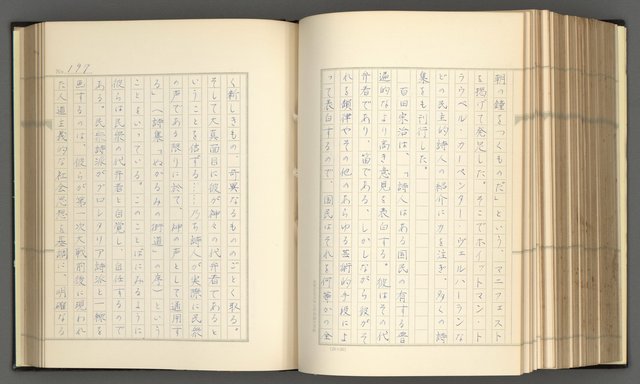 朝の鐘をつくものだ」という、マニフェスト
を掲げて発足した。そこでホイットマン・ト
ラウベル・カーペンター・ヴェルハーランな
どの民主的詩人の紹介に力を注ぎ、多くの詩
集をも刊行した。
百田宗治は、「詩人はある国民の有する普
遍的なより高き意見を表白する。彼はその代
弁者であり、笛である、しかしながら彼がそ
れを韻律やその他のあらゆる芸術的手段によ
って表白するので、国民はそれを何等かの全
No. 197
く新しきもの、奇異なるもののごとく取る。
そして大真面目に彼が神々の代弁者であると
いうことを信ずる……乃ち詩人が実際に民衆
の声である限りに於て、神の声として通用す
る」(詩集「ぬかるみの街道」序)という
ことをいっている。このことばにみるように
彼らは民衆の代弁者と自覚し、自任するので
ある。民衆詩派がプロレタリア詩派と一線を
画するのは、彼らが第一次大戦前後に現われ
た人道主義的な社会思想を基調に、明確なる